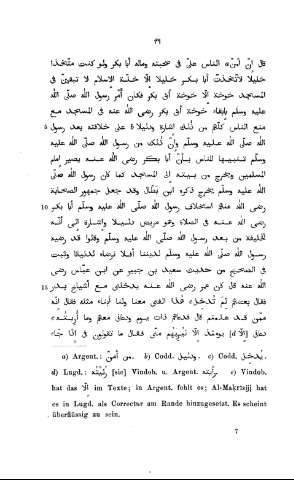 ٤٩
قال إن أمن a الناس على فى صحبته وماله أبا بكر ولو كنت متّخذا
خليلا لاتّخذت أبا بكر خليلا الّا خلّة الاسلام لا تبقين فى
المسجد خوخة الّا خوخة أبى بكر فكان أمر رسول الله صلّى الله
عليه وسلم بإبقاء خوخة أبى بكر رضى الله عنه فى المسجد مع
5 منع الناس كلّهم من ذلك اشارة ودليلا b على خلافته بعد رسول
الله صلّى الله عليه وسلّم وإنّ ذلك من رسول الله صلّى الله عليه
وسلّم تنبيها للناس بأن أبا بكر رضى الله عنه يصير إمام
المسلمين ويخرج من بيته الى المسجد كما كان رسول الله صلّى
الله عليه وسلم يخرج ذكره ابن بطّال وقد جعل جمهور الصحابة
10 رضى الله عنهم استخلاف رسول الله صلّى الله عليه وسلم أبا بكر
رضى الله عنه فى الصلاة وهو مريض دليلا واشارة الى أنّه
الخليفة من بعد رسول الله صلّى الله عليه وسلم وقالوا قد رضيه
رسول الله صلّى الله عليه وسلم لديننا أفلا نرضاه لدنيانا وثبت
فى الصحيح من حديث سعيد بن جبير عن ابن عبّاس رضى
15 الله عنه قال كان عمر رضى الله عنه يدخلنى مع أشياخ بدر
فقال بعضهم لم تُدخل c هذا الفتى معنا ولنا أبناء مثله فقال إنه
ممّن قد علمتم قال فدعاهم ذات يوم ودعانى معهم وما أُريتُه d
دعانى [الّا e] يومئذ الّا ليريهم منّى فقال ما تقولون فى إذا جاء
a) Argent.: من أمنّ. b) Codd. ودليل. c) Codd. يدخل.
d) Lugd.: رُئيتُه [sic] Vindob. u. Argent. رأيته. e) Vindob.
hat das الّا im Texte; in Argent. fehlt es; Al-Maḳrîzîjj hat
es in Lugd. als Correctur am Rande hinzugesetzt. Es scheint
überflüssig zu sein.
7